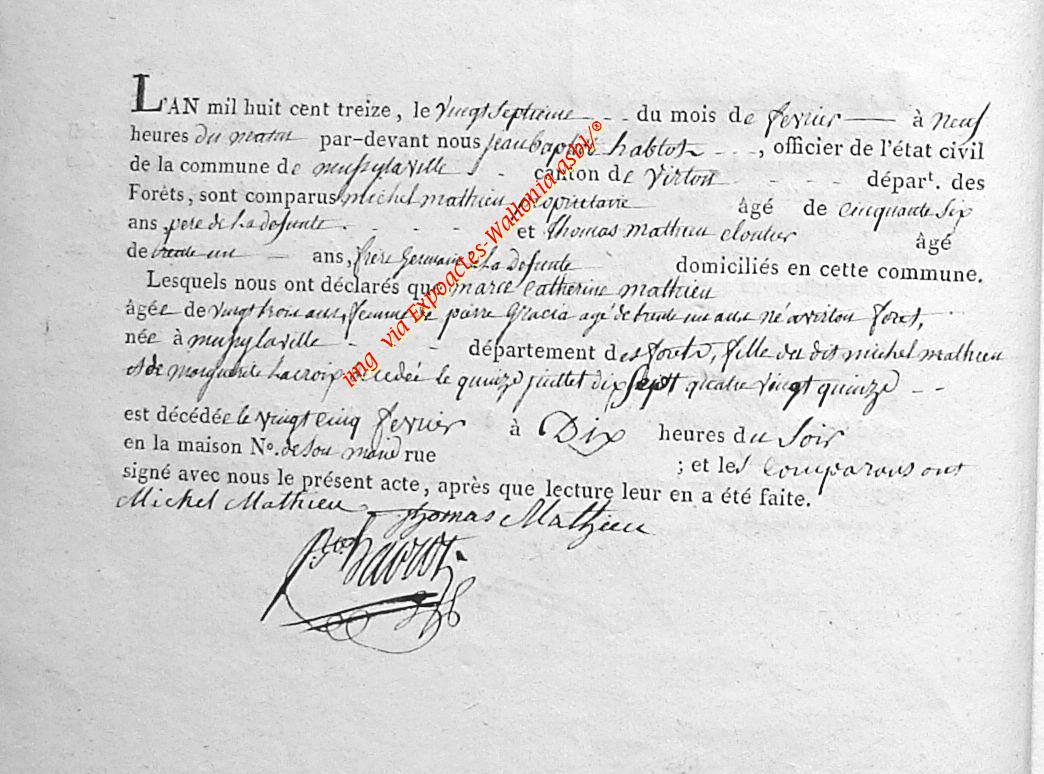 L'AN mil huit cent treize, le vingt septieme - - du mois de fevrier — à neuf
heures du matin par-devant nous jean bapt hablot - - -, officier de l'état civil
de la commune de mussylaville - canton de Virton - - - - départ. des
Forêts, sont comparus michel mathieu propriétaire âgé de cinquante six
ans, pere de La defunte. - - - - et thomas mathieu cloutier âgé
de trente un - ans, frere Germain de La Defunte domiciliés en cette commune.
Lesquels nous ont déclarés que marie Catherine mathieu
âgée de vingt trois ans, femme de pierre Gracia agé de trente un ans né a virton foret,
née à mussylaville - - - - département des forets, fille du dit michel mathieu
et de marguerite Lacroix le quinze juillet dix sept quatre vingt quinze - -
est décédée le vingt cinq fevrier à Dix heures du Soir
en la maison N°. de son rue ; et les comparans ont
signé avec nous le présent acte, après que lecture leur en a été faite.
Michel Mathieu - thomas Mathieu
hablot
img via Expoactes-Wallonia asbl/®